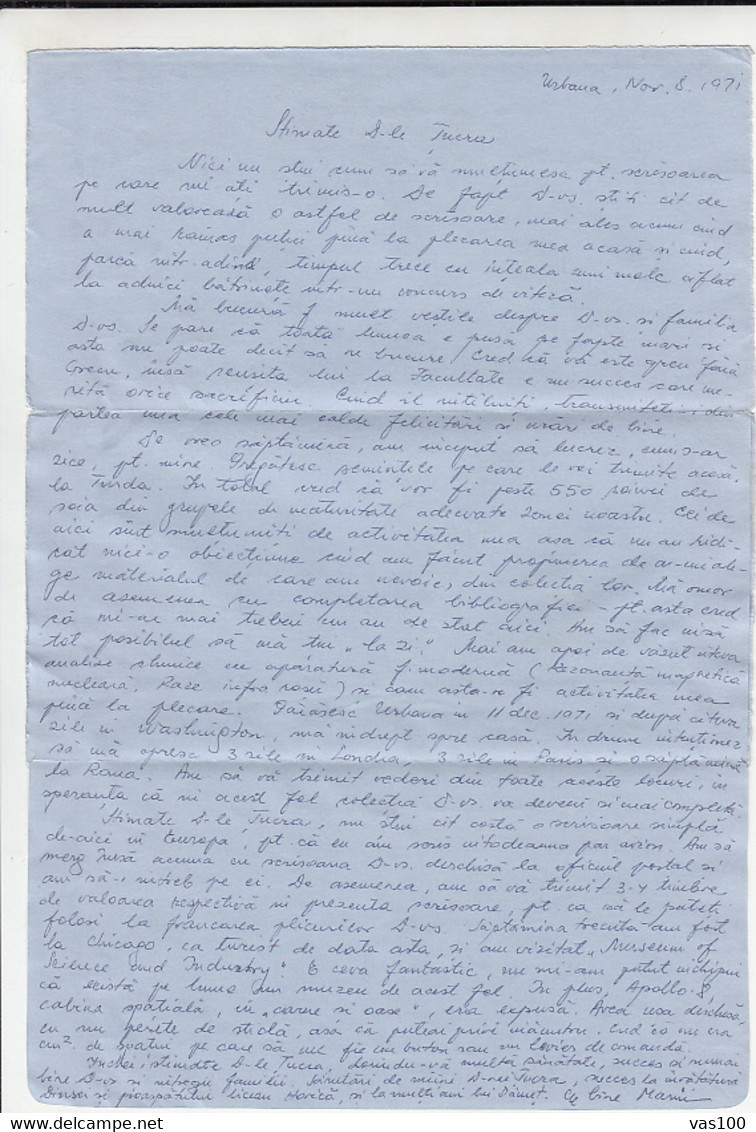 Urbana, Nov. 8. 1971
Stimate D-le Țucra
Nici nu știu cum să vă mulțumesc pt. scrisoarea
pe care mi-ați trimis-o. De fapt D-vs. știți cît de
mult valorează o astfel de scrisoare, mai ales acum cînd
a mai rămas puțin pînă la plecarea mea acasă și cînd,
parcă într-adins, timpul trece cu iuțeala unui melc aflat
la adînci bătrînețe într-un concurs de viteză.
Mă bucură f. mult veștile despre D-vs. și familia
D-vs. Se pare că toată lumea e pusă pe fapte mari și
asta nu poate decît să ne bucure. Cred că vă este greu fără
însă reușita lui la Facultate e un succes care me-
rită orice sacrificiu. Cînd îl întîlniți, transmiteți-i din
partea mea cele mai calde felicitări și urări de bine.
De vreo săptămînă, am început să lucrez, cum s-ar
zice, pt. mine. Pregătesc semințele pe care le voi trimite acasă,
la Turda. În total cred că vor fi peste 550 soiuri de
soia din grupele de maturitate adecvate zonei noastre. Cei de
aici sînt mulțumiți de activitatea mea așa că nu au ridi-
cat nici-o obiecțiune cînd am făcut propunerea de a-mi ale-
ge materialul de care am nevoie, din colecția lor. Mă omor
de asemenea cu completarea bibliografiei - pt. asta cred
că mi-ar mai trebui un an de stat aici. Am să fac însă
tot posibilul să mă țin „la zi". Mai am apoi de văzut cîteva
analize chimice cu aparatură f. modernă (Rezonanță magnetică
nucleară, Raze infra roșii) și cam asta-r fi activitatea mea
pînă la plecare. Părăsesc Urbana în 11 dec. 1971 și după cîteva
zile în Washington, mă îndrept spre casă. În drum intenționez
să mă opresc 3 zile în Londra, 3 zile în Paris și o săptămînă
la Roma. Am să vă trimit vederi din toate aceste locuri, în
speranța că în acest fel colecția D-vs. va deveni și mai completă.
Stimate D-le Țucra, nu știu cît costă o scrisoare simplă
de-aici în Europa, pt. că eu am scris întotdeauna par avion. Am să
merg însă acuma cu scrisoarea D-vs. deschisă la oficiul poștal și
am să-i întreb pe ei. De asemenea, am să vă trimit 3-4 timbre
de valoarea respectivă în prezenta scrisoare, pt. ca să le puteți
folosi la francarea plicurilor D-vs. Săptămîna trecută am fost
la Chicago, ca turist de data asta, și am vizitat „Museum of
Science and Industry". E ceva fantastic, nu mi-am putut închipui
că există pe lume un muzeu de acest fel. În plus, Apollo-8,
cabina spațială, în „carne și oase", era expusă. Avea ușa deschisă,
cu un perete de sticlă, așa că puteai privi înăuntru. Cred că nu era
cm² de spațiu pe care să nu fie un buton sau un levier de comandă.
Închei, stimate D-le Țucra, dorindu-vă multă sănătate, succes și numai
bine D-vs și întregii familii. Sărutări de mîini D-nei Țucra, succes la învățătură
și proaspătului licean Horică, și la mulți ani lui Cu bine Marin